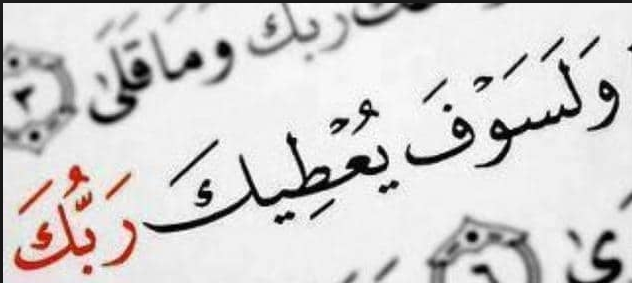 ربك وما قلى ٣
وَلَسَوْفَ يُعْطِيكَ رَبُّكَ